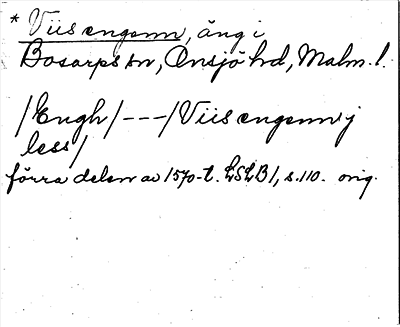 * Viisengenn, äng i
Bosarps sn, Onsjö hd, Malm. l.
/Engh/---/Viisengenn j
less/
förra delen av 1570-t. LSLB1, s. 110. orig.